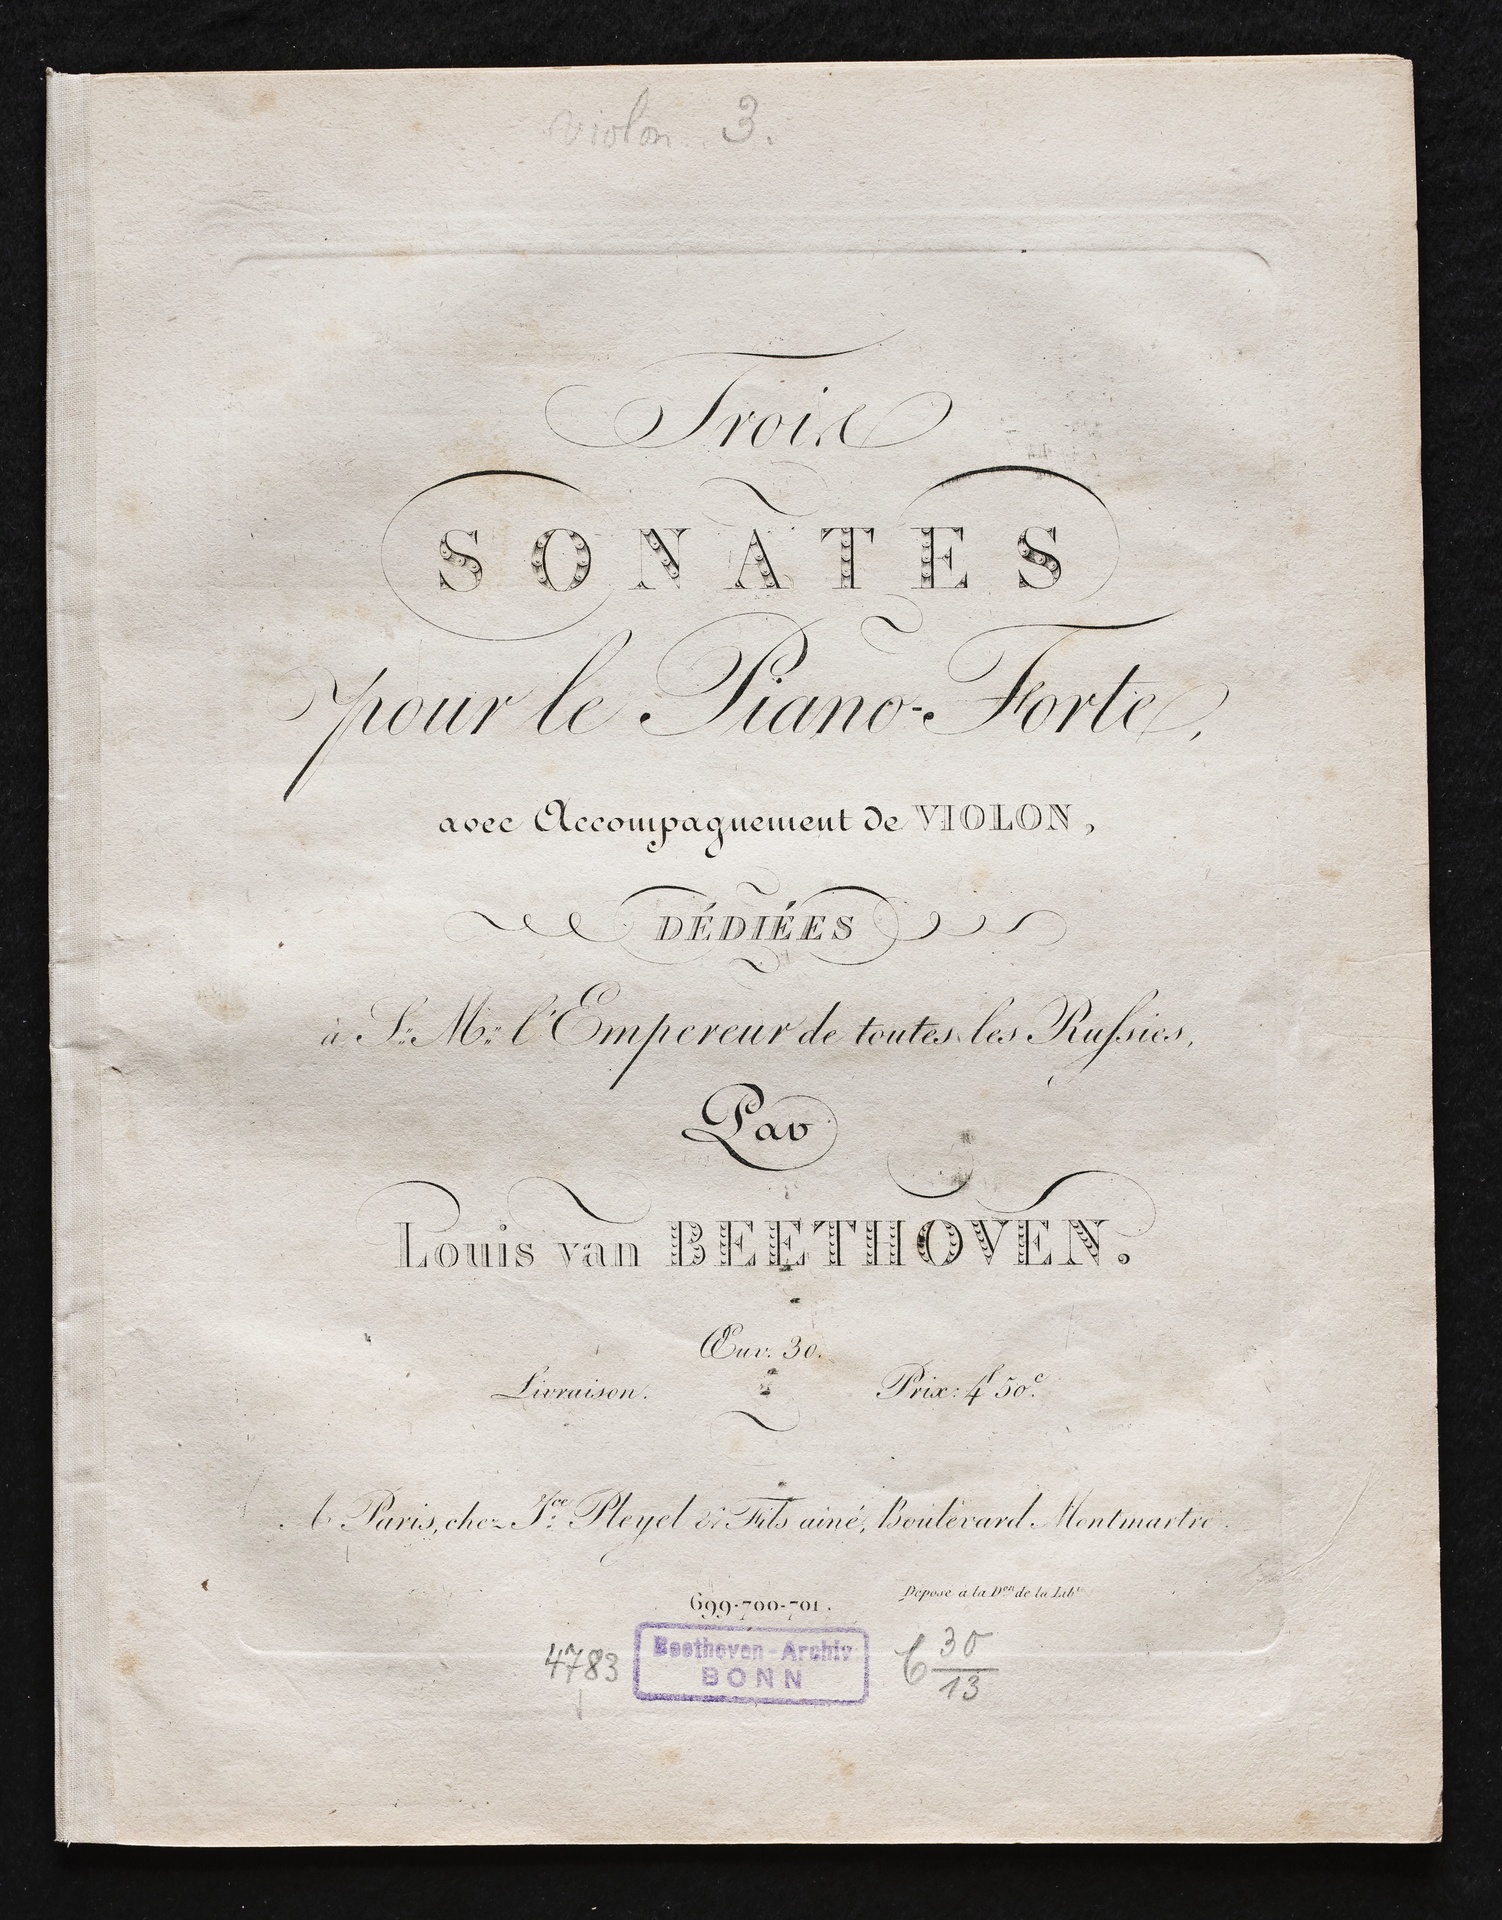 violon. 3.
Trois
SONATES
pour le Piano-Forte,
avec Accompagnement de VIOLON,
DÉDIÉES
à S.M. l'Empereur de toutes les Russies,
Par
Louis van BEETHOVEN.
Œuv. 30.
Livraison. Prix: 4f 50c.
A Paris, chez Jce. Pleyel & Fils ainé, Boulevard Montmartre.
699-700-701. Déposé à la Don de la Libe
4783 Beethoven-Archiv
BONN
C 30/13